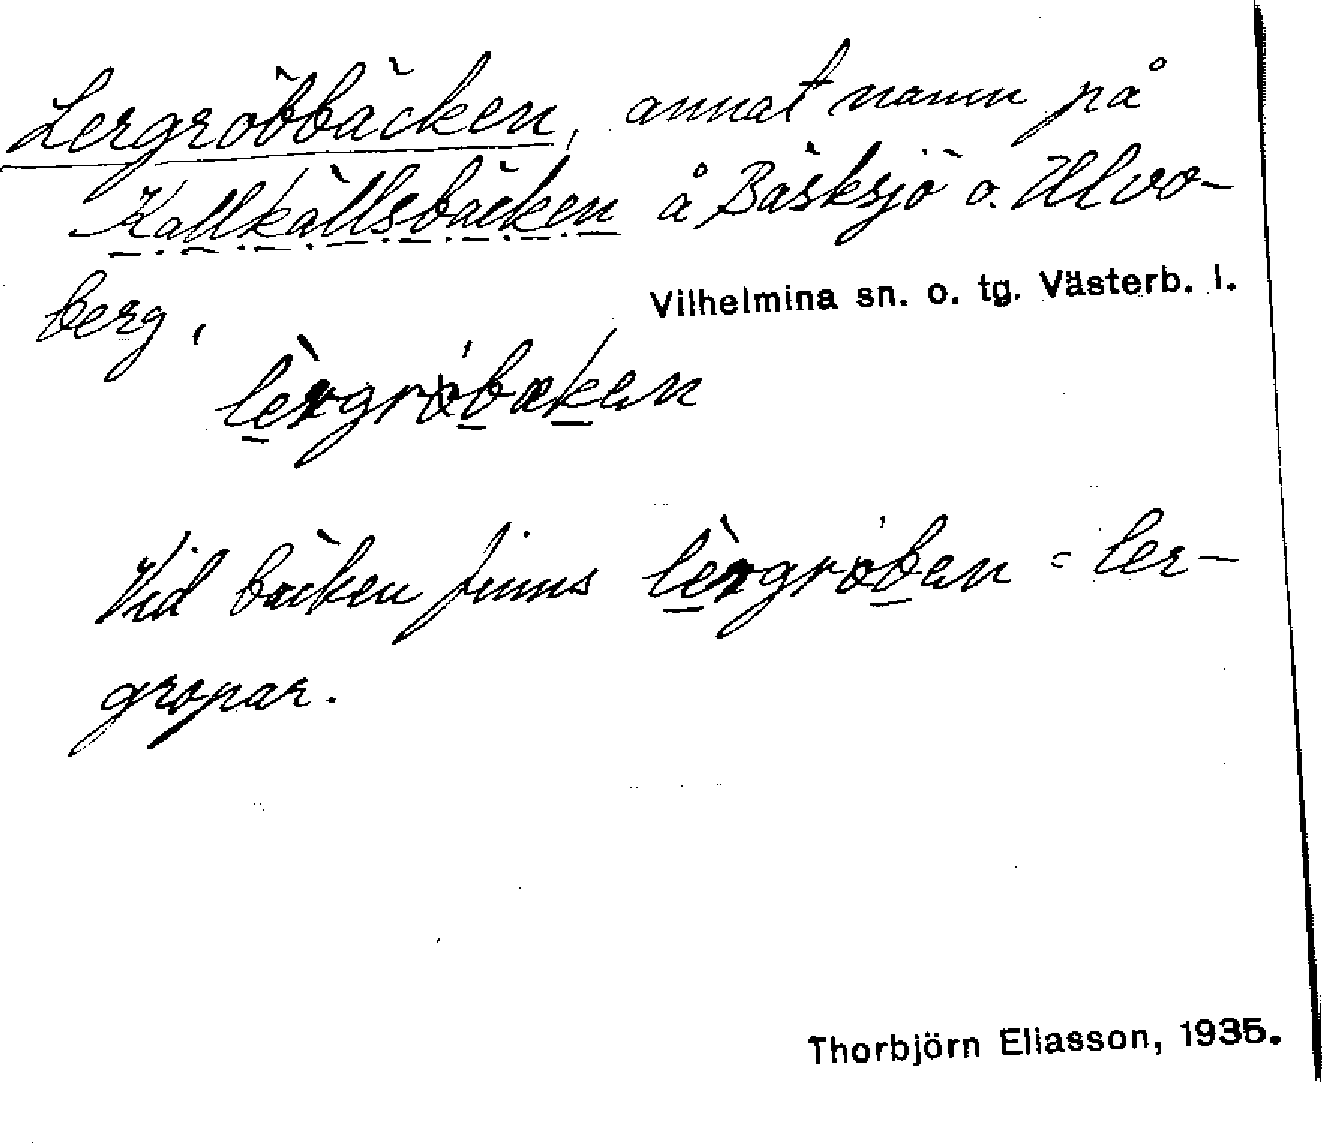 Lergröbbäcken, annat namn på
Kallkällsbäcken å Bäsksjö o. Ulvo-
berg,
Vilhelmina sn. o. tg. Västerb. l.
lèrgröbækan
Vid bäcken finns lèrgröban = ler-
gropar.
Thorbjörn Eliasson, 1935.